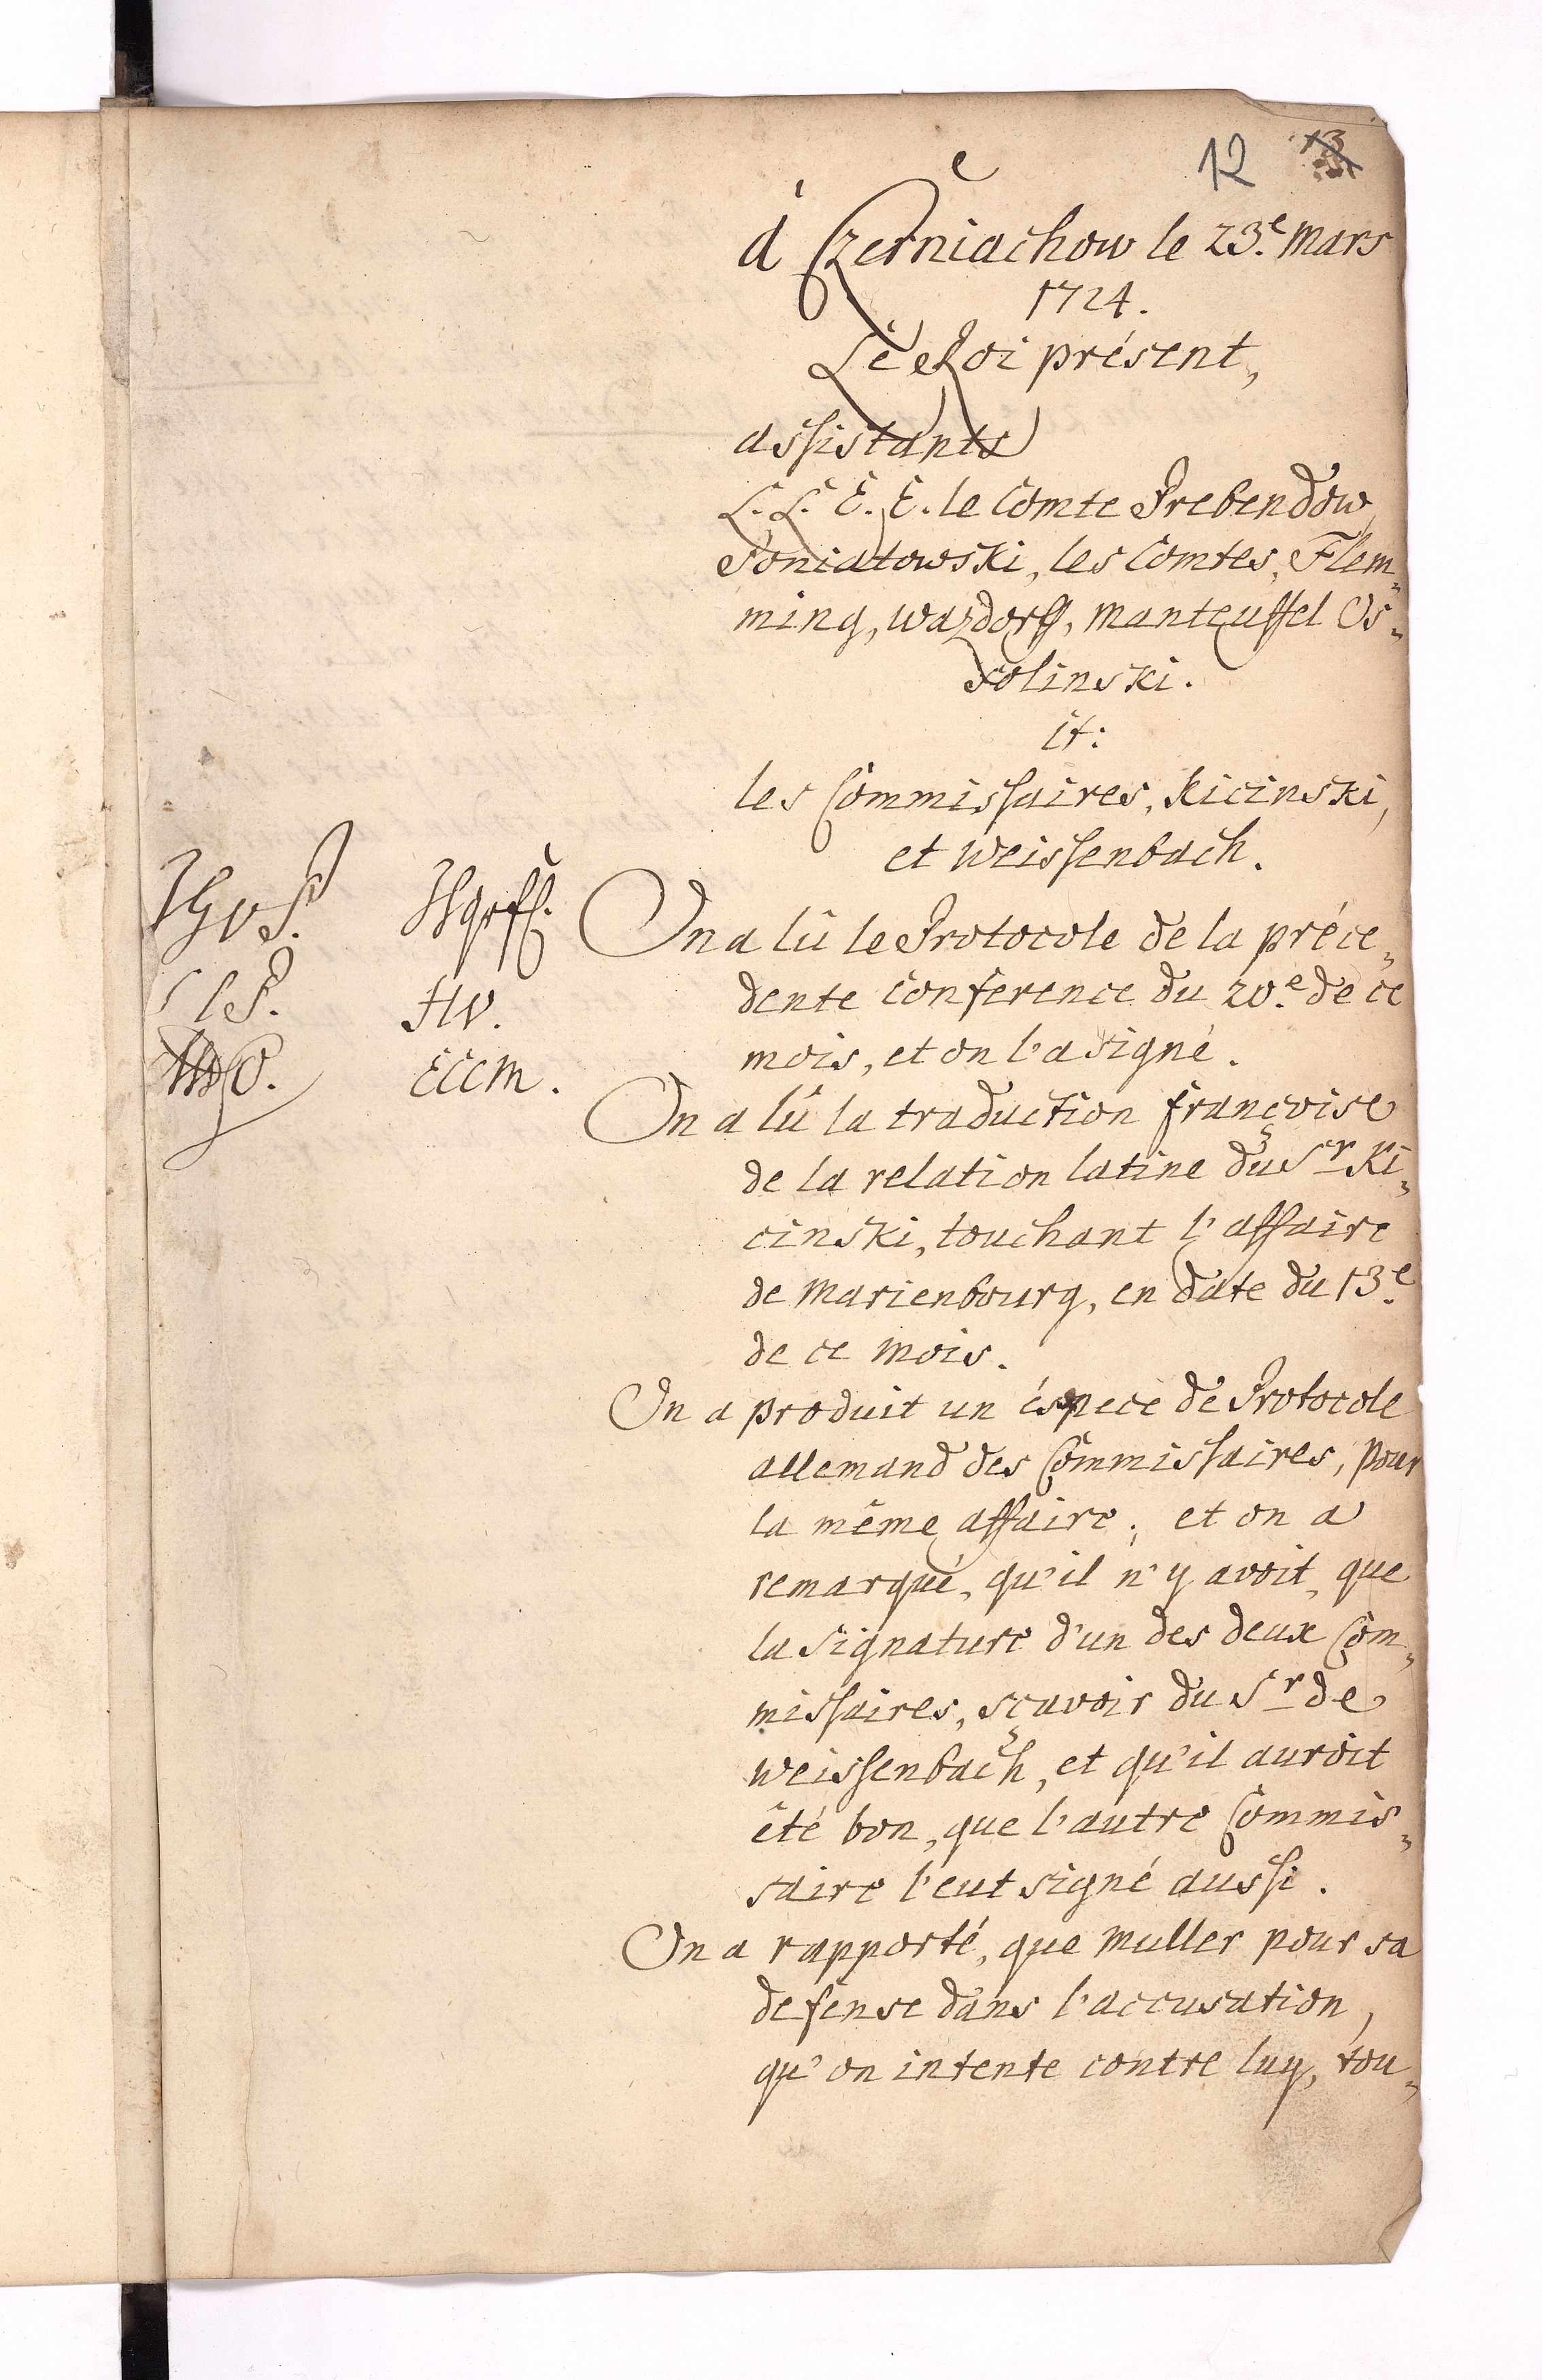 12 13
à Czerniachow le 23.e Mars
1724.
Le Roi présent,
assistants
L. L. E. E. le Comte Prebendow,
Poniatowski, les Comtes, Flem„
ming, Wazdorff, Manteuffel Os„
solinski.
it:
les Commissaires, Kicinski,
et Weissenbach.
On a lû le Protocole de la préce„
dente conference du 20.e de ce
mois, et on l'a signé.
HV.
ECCM.
On a lû la traduction françoise
de la relation latine du Sr Ki„
cinski, touchant l'affaire
de Marienbourg, en date du 13.e
de ce mois.
On a produit un éspece de Protocole
allemand des Commissaires, pour
la même affaire; et on a
remarqué, qu'il n'y avoit, que
la signature d'un des deux Com„
missaires, sçavoir du Sr de
Weissenbach, et qu'il auroit
êté bon, que l'autre Commis„
saire l'eut signé aussi.
On a rapporté, que Muller pour sa
defense dans l'accusation,
qu'on intente contre luy, tou„